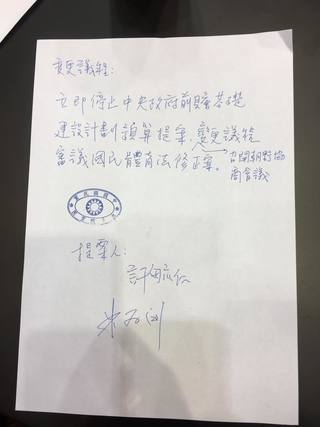 變更議程:
立即停止中央政府前瞻基礎
建設計劃預算提案,變更議程
審議國民體育法修正案。
召開朝野協
商會議
提案人: